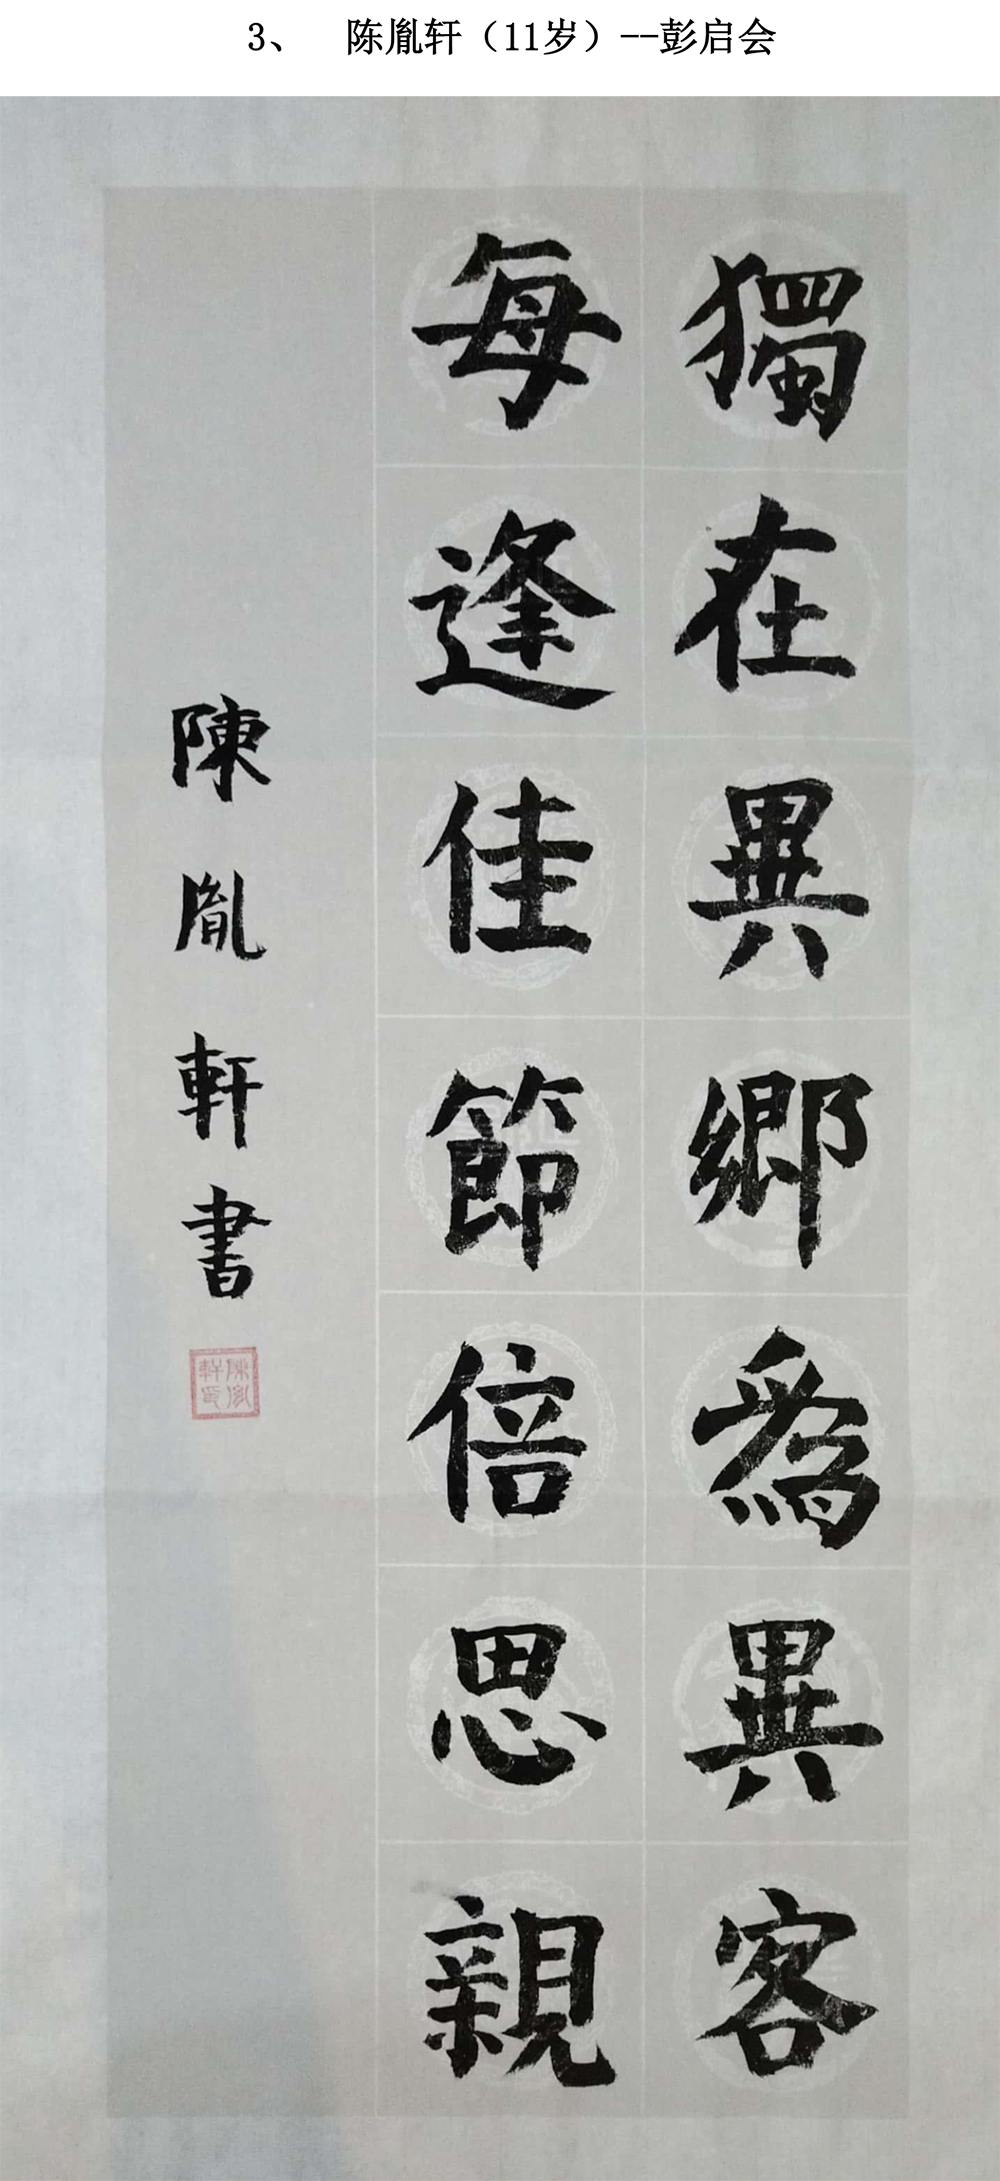 3、 陈胤轩（11岁）--彭启会
獨在異鄉爲異客
每逢佳節倍思親
陳胤軒書
陳胤軒印